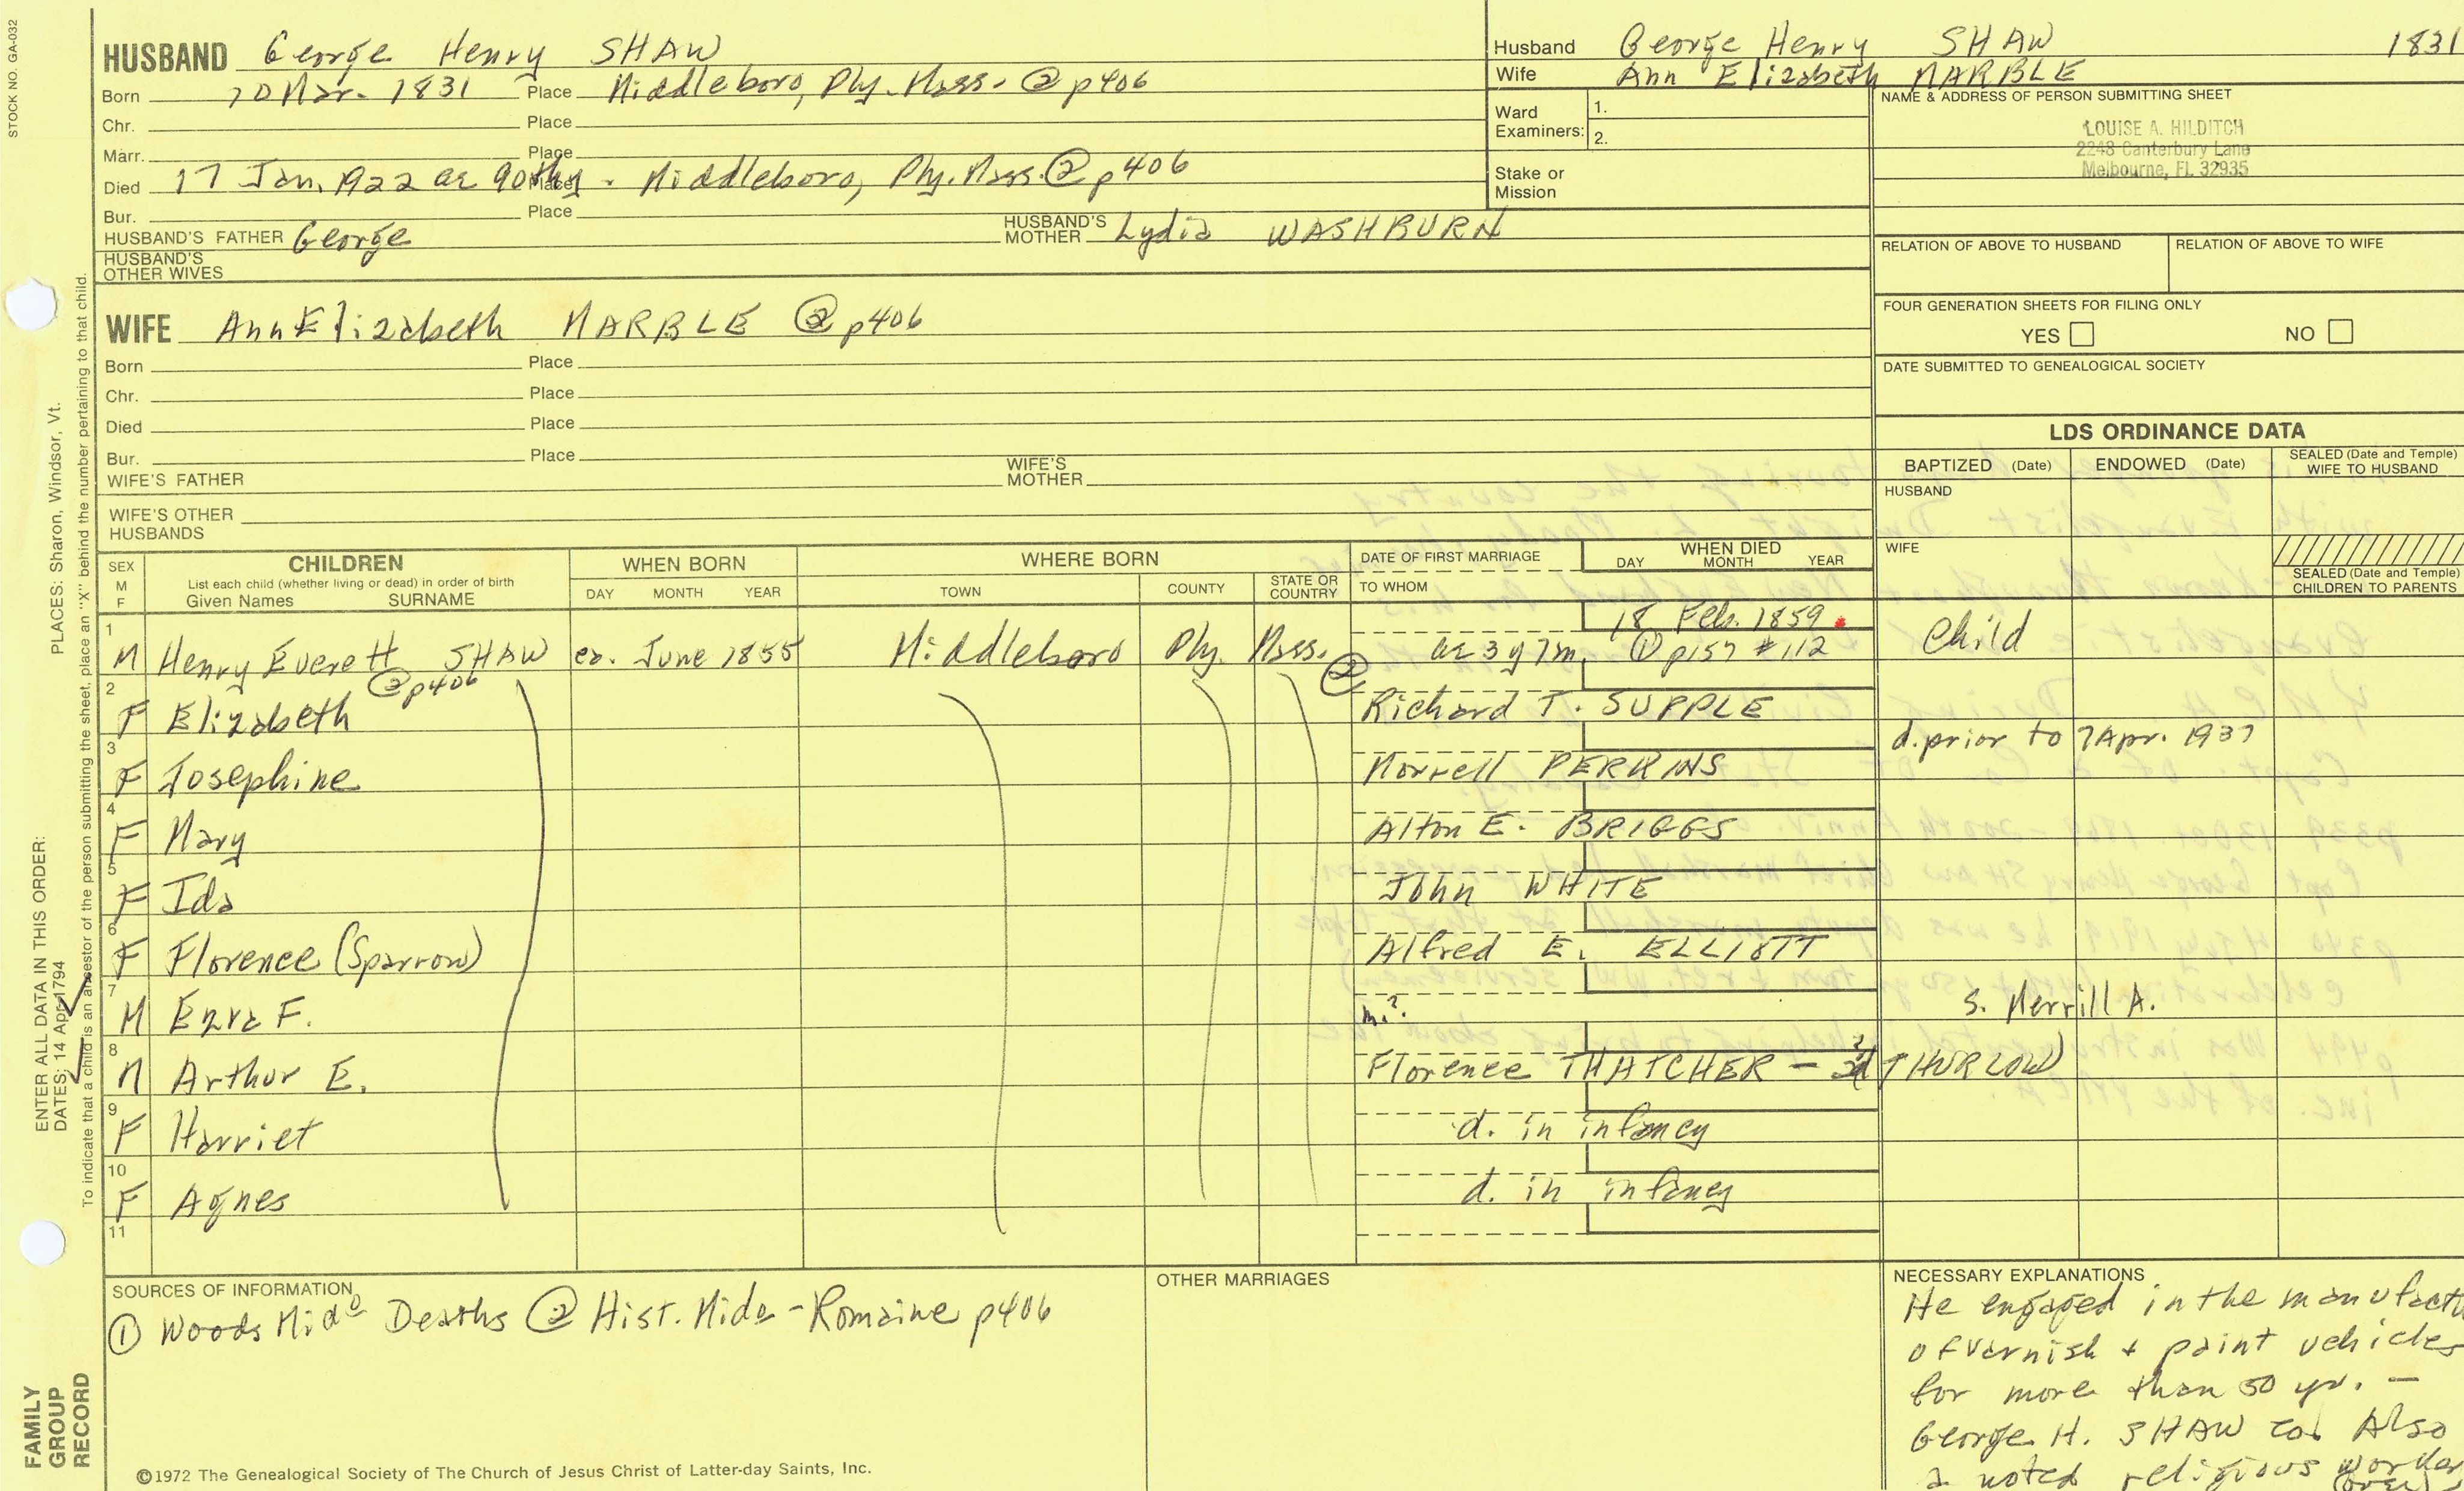 STOCK NO. GA-032
HUSBAND George Henry SHAW
Born Mar. 1831 Place Middleboro, Ply. Mass. @ p406
Chr. Place
Marr. Place
Died 17 Jan. 1922 ae 90 Place Middleboro, Ply. Mass. ② p406
Bur. Place
HUSBAND'S FATHER George HUSBAND'S MOTHER Lydia WASHBURN
HUSBAND'S OTHER WIVES
Husband George Henry SHAW 1831
Wife Ann Elizabeth MARBLE
Ward Examiners: 1.
2.
Stake or Mission
NAME & ADDRESS OF PERSON SUBMITTING SHEET
LOUISE A. HILDITCH
2248 Canterbury Lane
Melbourne, FL 32935
RELATION OF ABOVE TO HUSBAND RELATION OF ABOVE TO WIFE
FOUR GENERATION SHEETS FOR FILING ONLY
YES NO
DATE SUBMITTED TO GENEALOGICAL SOCIETY
WIFE Ann Elizabeth MARBLE ② p406
Born Place
Chr. Place
Died Place
Bur. Place
WIFE'S FATHER WIFE'S MOTHER
WIFE'S OTHER HUSBANDS
LDS ORDINANCE DATA
BAPTIZED (Date) ENDOWED (Date) SEALED (Date and Temple) WIFE TO HUSBAND
HUSBAND
WIFE
SEALED (Date and Temple) CHILDREN TO PARENTS
SEX M F CHILDREN List each child (whether living or dead) in order of birth Given Names SURNAME
WHEN BORN DAY MONTH YEAR
WHERE BORN TOWN COUNTY STATE OR COUNTRY
DATE OF FIRST MARRIAGE TO WHOM
WHEN DIED DAY MONTH YEAR
18 Feb. 1859
1 M Henry Everett SHAW ca. June 1855 Middleboro Ply. Mass. ae 3y 7m ① p157 #112 Child
@ p406 ②
2 F Elizabeth Richard T. SUPPLE
d. prior to 7 Apr. 1937
3 F Josephine Morrell PERKINS
4 F Mary Alton E. BRIGGS
5 F Ida John WHITE
6 F Florence (Sparrow) Alfred E. ELLIOTT
7 M Ezra F. m.? S. Merrill A.
8 M Arthur E. Florence THATCHER - THURLOW)
9 F Harriet d. in infancy
10 F Agnes d. in infancy
11
SOURCES OF INFORMATION
① Woods Mido Deaths @ Hist. Mido - Romaine p406
OTHER MARRIAGES
NECESSARY EXPLANATIONS
He engaged in the manufact
of varnish + paint vehicles
for more than 50 yr. -
George H. SHAW co. Also
a noted religious worker
(over)
©1972 The Genealogical Society of The Church of Jesus Christ of Latter-day Saints, Inc.
FAMILY GROUP RECORD
ENTER ALL DATA IN THIS ORDER:
DATES: 14 Apr 1794 PLACES: Sharon, Windsor, Vt.
To indicate that a child is an ancestor of the person submitting the sheet, place an "X" behind the number pertaining to that child.